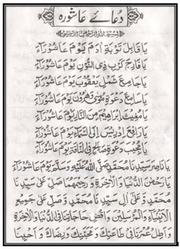 دُعائے عاشورہ
بِسْمِ اللهِ الرَّحْمٰنِ الرَّحِيْمِ
يَا قَابِلَ تَوْبَةِ اٰدَمَ يَوْمَ عَاشُوْرَآءَ
يَا فَارِجَ كَرْبِ ذِى النُّوْنِ يَوْمَ عَاشُوْرَآءَ
يَا جَامِعَ شَمْلِ يَعْقُوْبَ يَوْمَ عَاشُوْرَآءَ
يَا سَامِعَ دَعْوَةِ مُوْسٰى وَهٰرُوْنَ يَوْمَ عَاشُوْرَآءَ
يَا مُغِيْثَ اِبْرَاهِيْمَ مِنَ النَّارِ يَوْمَ عَاشُوْرَآءَ
يَا رَافِعَ اِدْرِيْسَ اِلَى السَّمَآءِ يَوْمَ عَاشُوْرَآءَ
يَا مُجِيْبَ دَعْوَةِ صَالِحٍ فِى النَّاقَةِ يَوْمَ عَاشُوْرَآءَ
يَا نَاصِرَ سَيِّدِنَا مُحَمَّدٍ صَلَّى اللهُ عَلَيْهِ وَسَلَّمَ يَوْمَ عَاشُوْرَآءَ
يَا رَحْمٰنَ الدُّنْيَا وَالْاٰخِرَةِ وَرَحِيْمَهُمَا صَلِّ عَلٰى سَيِّدِنَا
مُحَمَّدٍ وَّعَلٰى اٰلِ سَيِّدِنَا مُحَمَّدٍ وَّصَلِّ عَلٰى جَمِيْعِ
الْاَنْبِيَآءِ وَالْمُرْسَلِيْنَ وَاقْضِ حَاجَاتِنَا فِى الدُّنْيَا وَالْاٰخِرَةِ
وَاَطِلْ عُمُرَنَا فِىْ طَاعَتِكَ وَمَحَبَّتِكَ وَرِضَاكَ وَاَحْيِنَا